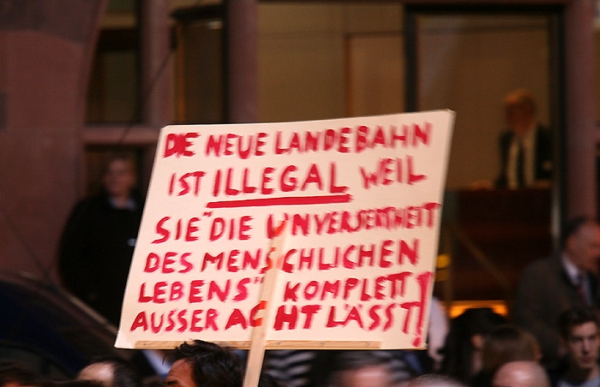 DIE NEUE LANDEBAHN
IST ILLEGAL WEIL
SIE "DIE UNVERSERTHEIT
DES MENSCHLICHEN
LEBENS" KOMPLETT
AUSSER ACHT LÄSST!